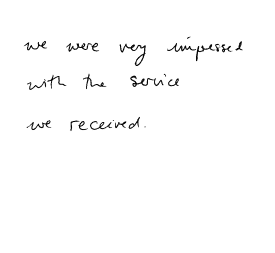 we were very impressed
with the service
we received.